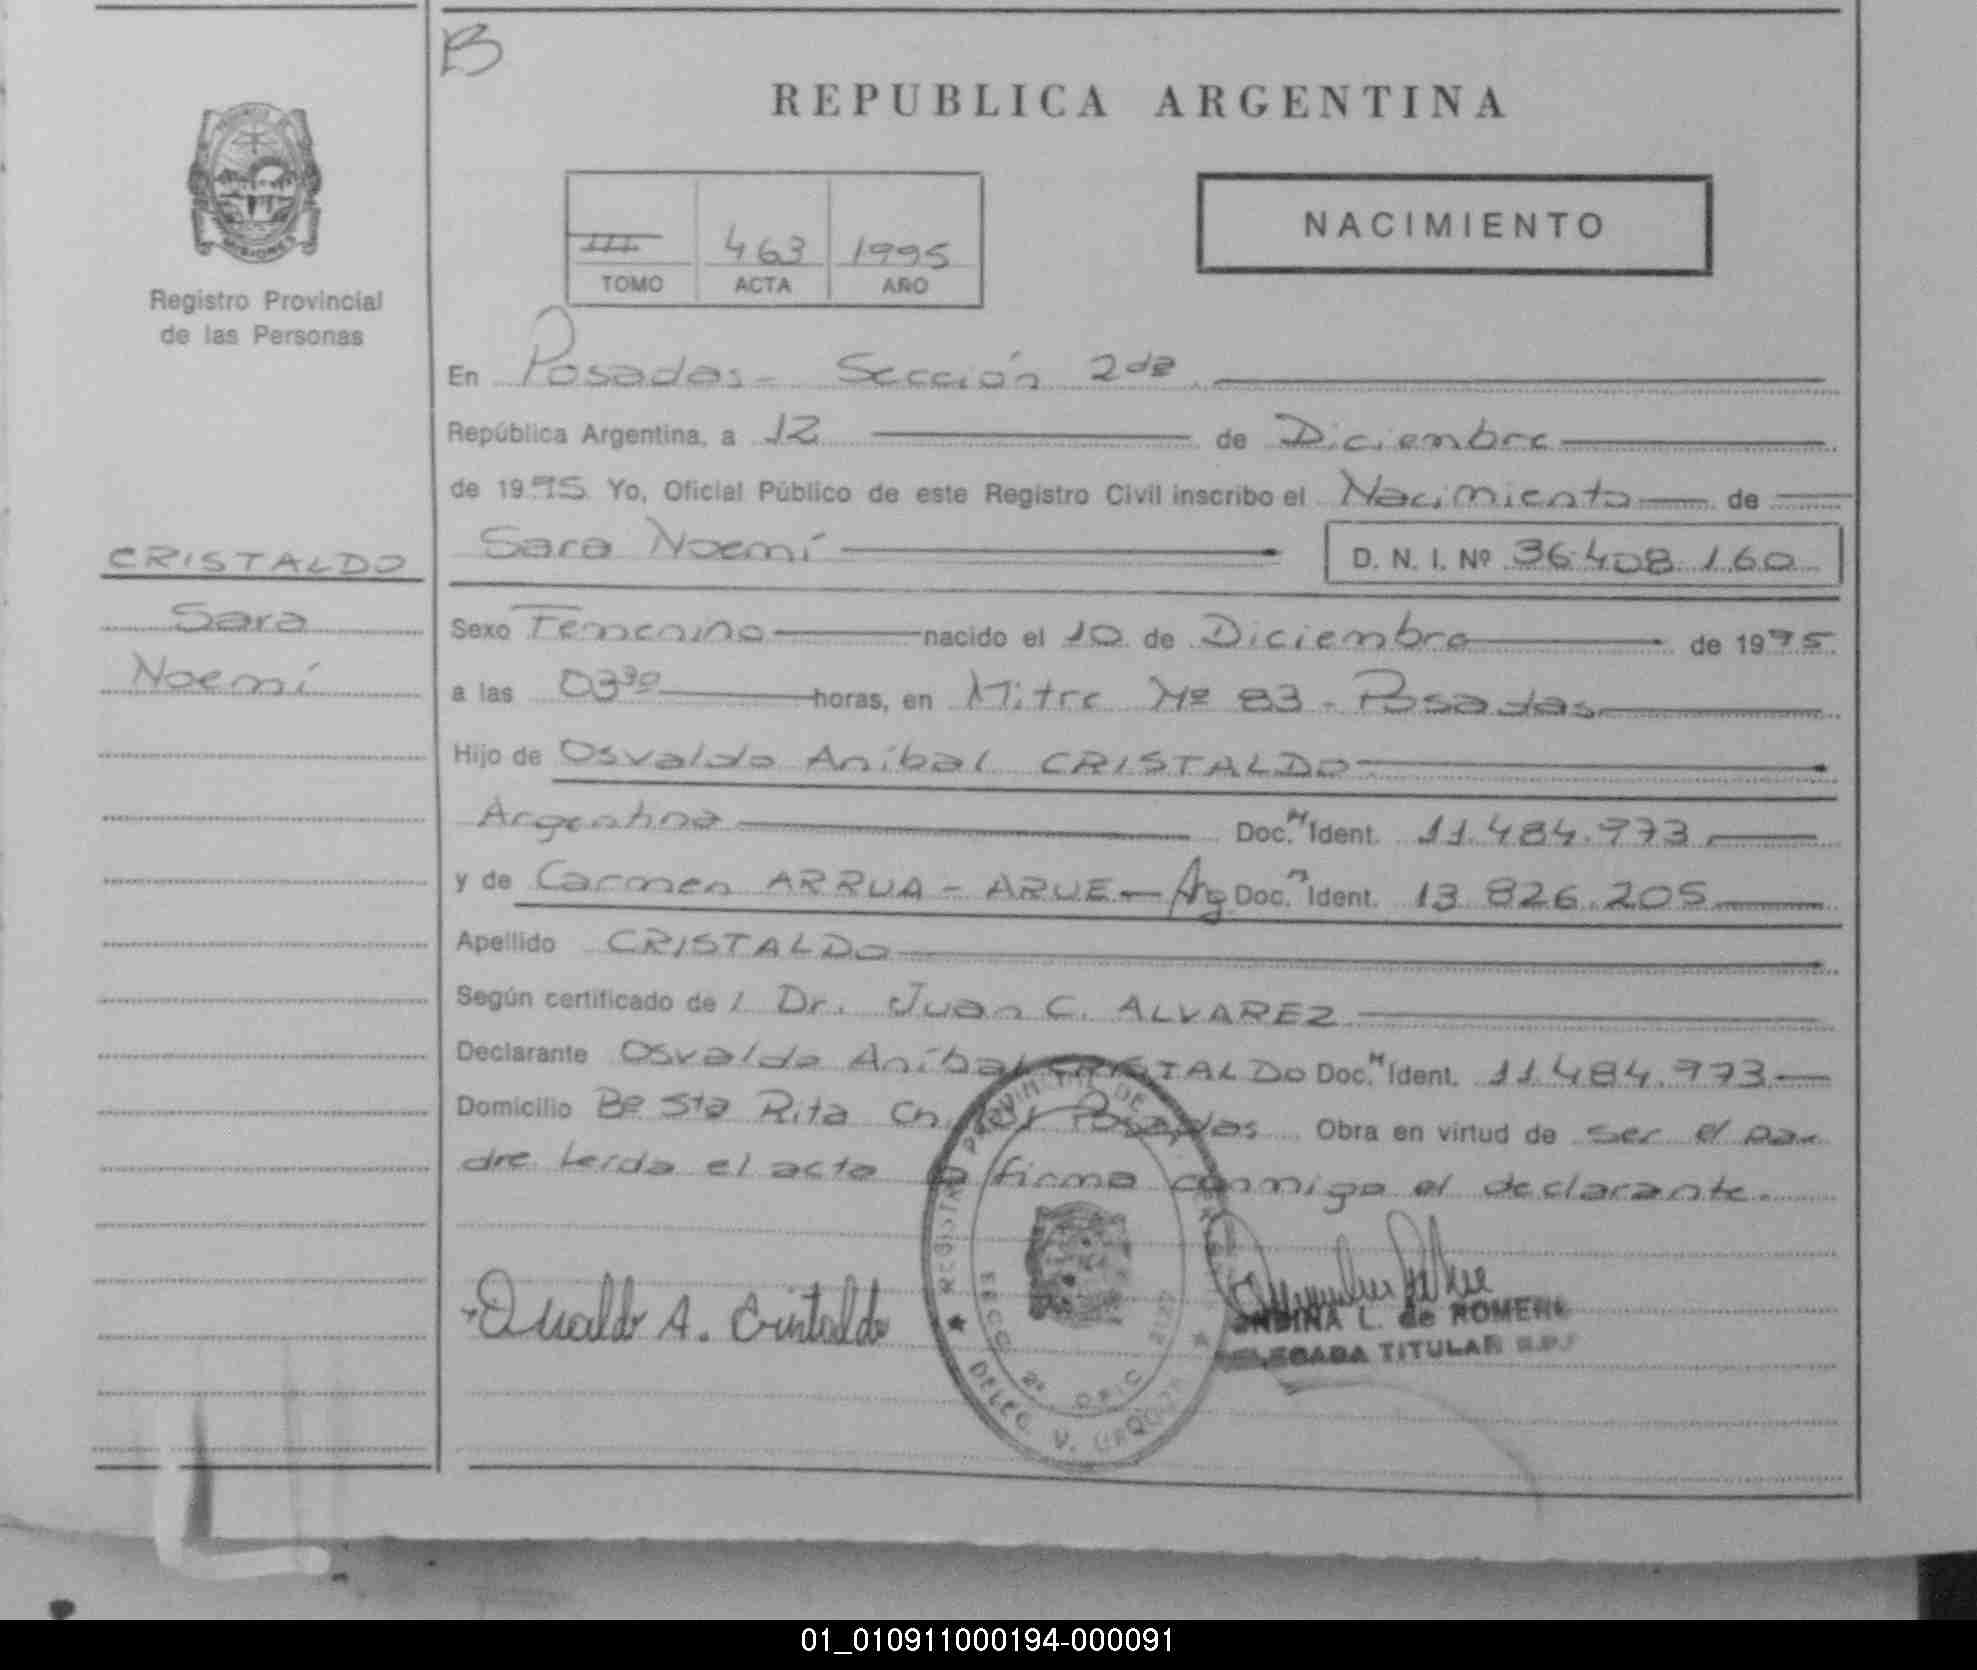 B
REPUBLICA ARGENTINA
MISIONES
Registro Provincial
de las Personas
NACIMIENTO
III 463 1995
TOMO ACTA AÑO
En Posadas - Sección 2da
República Argentina, a 12 de Diciembre
de 1995 Yo, Oficial Público de este Registro Civil inscribo el Nacimiento de
Sara Noemí D. N. I. Nº 36.408.160
CRISTALDO
Sara
Noemí
Sexo Femenino nacido el 10 de Diciembre de 1995
a las 03³⁰ horas, en Mitre Nº 83 - Posadas
Hijo de Osvaldo Aníbal CRISTALDO
Argentino Doc. N Ident. 11.484.973
y de Carmen ARRUA - ARUE - Arg Doc. N Ident. 13.826.205
Apellido CRISTALDO
Según certificado de l Dr. Juan C. ALVAREZ
Declarante Osvaldo Aníbal CRISTALDO Doc. N Ident. 11.484.973
Domicilio Bº Sta Rita Posadas Obra en virtud de ser el pa-
dre Leída el acta la firma conmigo el declarante.
REGISTRO PROVINCIAL DE
SECC. 2ª OFIC.
DELEG. V. URQUIZA
Osvaldo A. Cristaldo
ONDINA L. de ROMERO
DELEGADA TITULAR R.P.
01_010911000194-000091